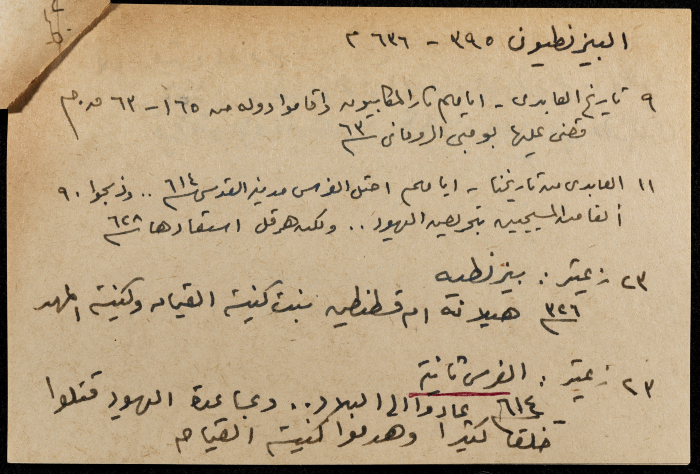 البيزنطيون ٣٩٥ - ٦٣٦ م
٩ تاريخ العابدي - ايامهم ثار المكابيون واقاموا دولة من ١٦٥ - ٦٣ ق.م
قضى عليها بومبي الروماني ٦٣
١١ العابدي من تاريخنا - ايامهم احتل الفرس مدينة القدس ٦١٤ .. وذبحوا ٩٠
ألفا من المسيحيين بتحريض اليهود .. ولكن هرقل استعادها ٦٢٨
٢٣ زعيتر : بيزنطيه
٣٢٦ هيلانة ام قسطنطين بنت كنيسة القيامه وكنيسة المهد
٢٣ زعيتر : الفرس ثانية
٦١٤ عادوا الى البلاد .. وبمساعدة اليهود قتلوا
خلقا كثيرا وهدموا كنيسة القيامه